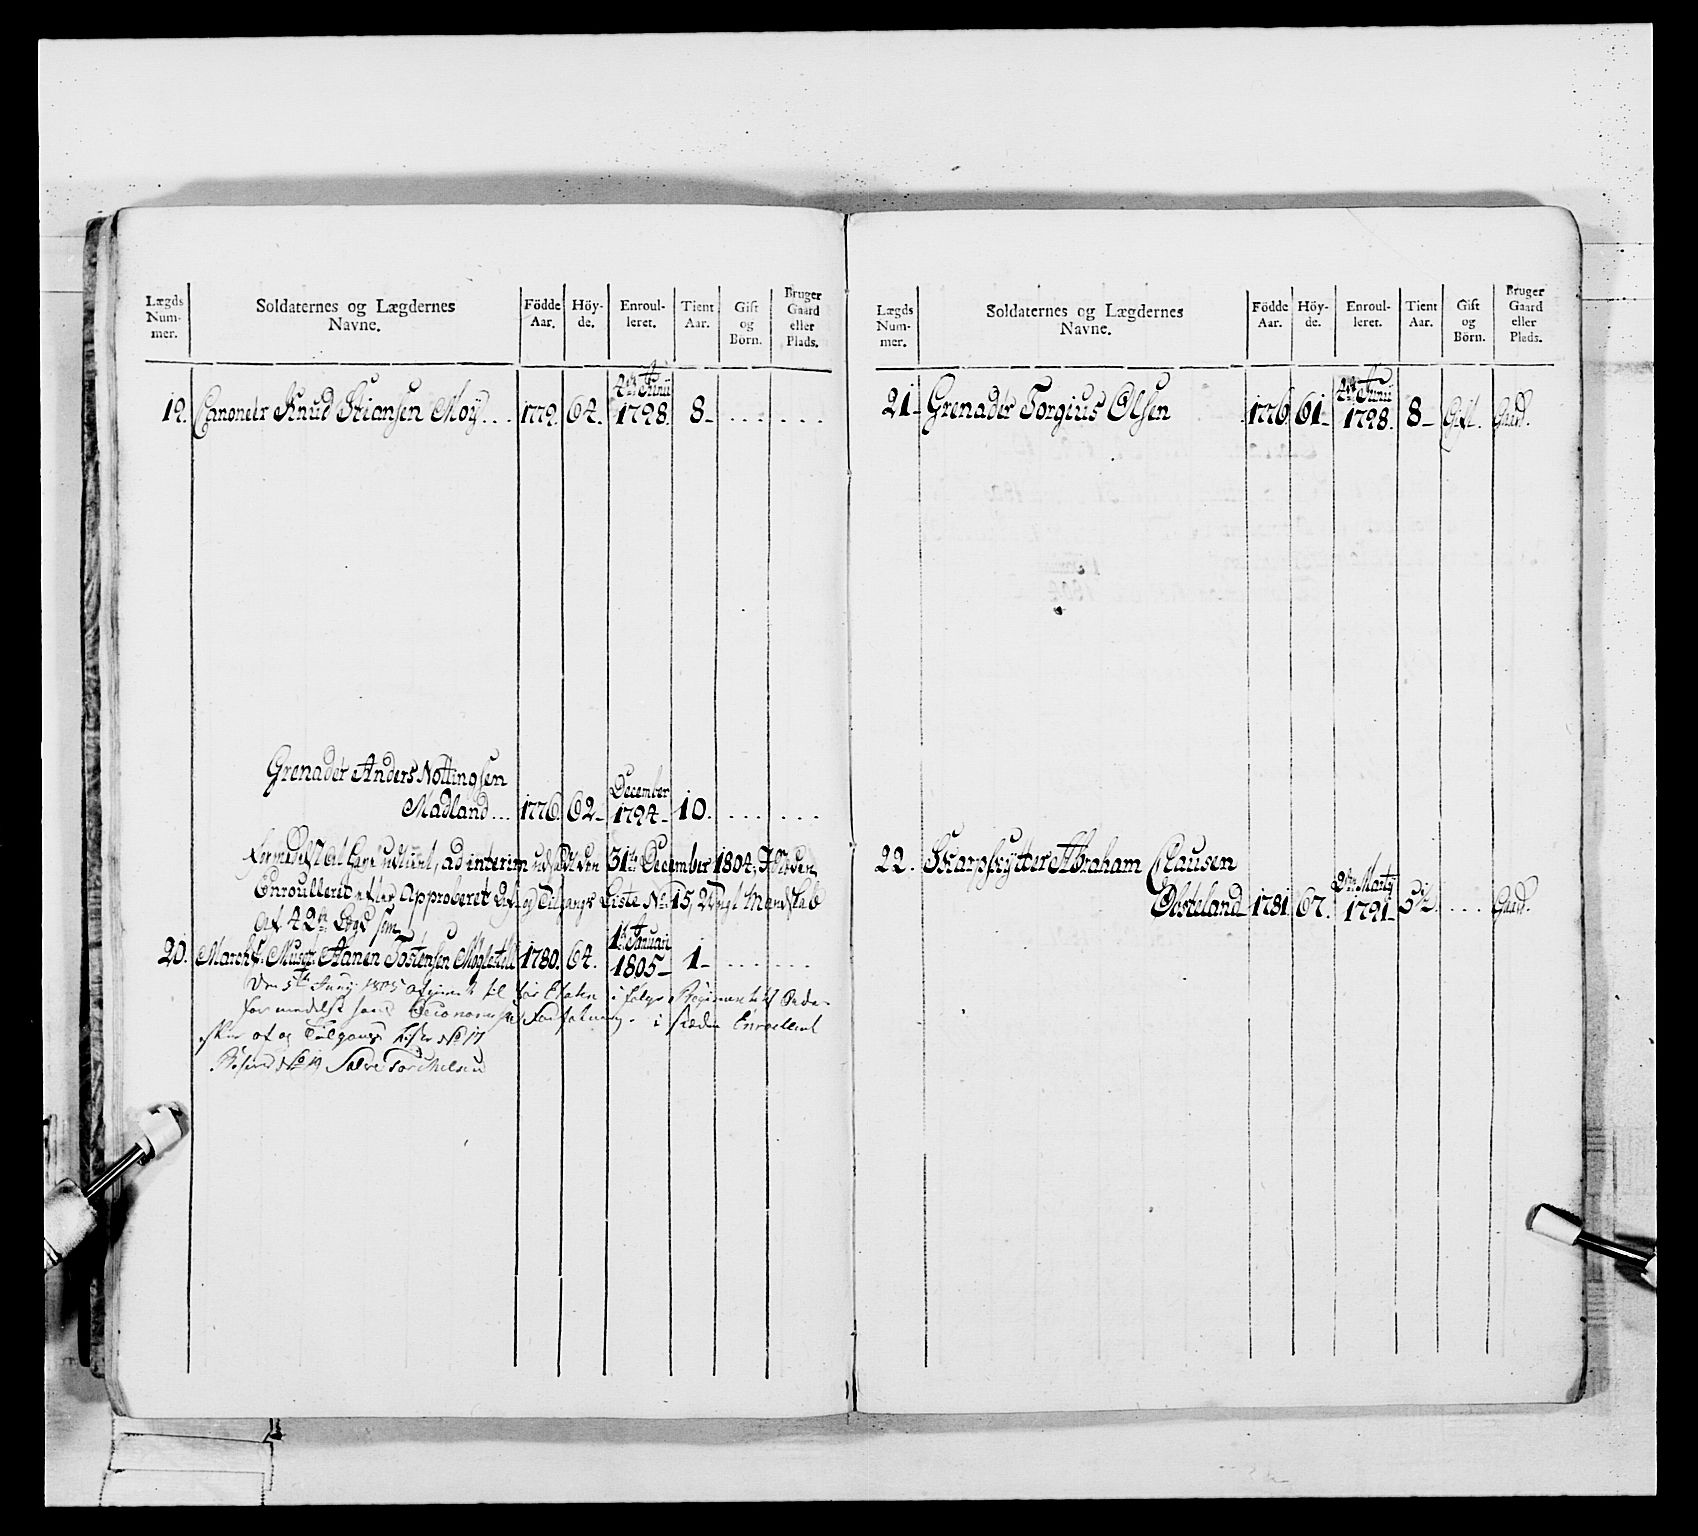 Lægds Num- mer. Soldaternes og Lægdernes Navne. Födde Aar. Höy- de. Enroul- leret. Tient Aar. Gift og Börn. Bruger Gaard eller Plads.
19. Canoneer Knud Stiansen Moÿ... 1779. 64. 4de Junii 1798. 8- ... ...
Grenadér Anders Nottingsen
Madland... 1776. 62- December 1794- 10. ... ...
formedelst at have udtient, ad interim udsadt den 31te December 1804, I Steden
Enroulleret efter Approberet Af og Tilgangs Liste No 15, Ungt Mandskab
Af 42de Lægd som
20. March s. Musqt: Aanen Tostensen Møgletell 1780. 64. 1te Januari 1805- 1- ... ...
Den 5te Junÿ 1805 afgived til
for Etaten i følge Regimentets Ordre
formedelst hans i Steden Enroullert
efter af og Tilgangs Liste No 17
Reserve No 19 Salve Torchelsen
Lægds Num- mer. Soldaternes og Lægdernes Navne. Födde Aar. Höy- de. Enroul- leret. Tient Aar. Gift og Börn. Bruger Gaard eller Plads.
21- Grenadér Torgius Olsen 1776. 61- 4de Junii 1798. 8- Gift. Gaard.
22. Skarpskytter Abraham Clausen
Obsteland- 1781. 67. 2den Martÿ 1791- 5½. ... Gaard.